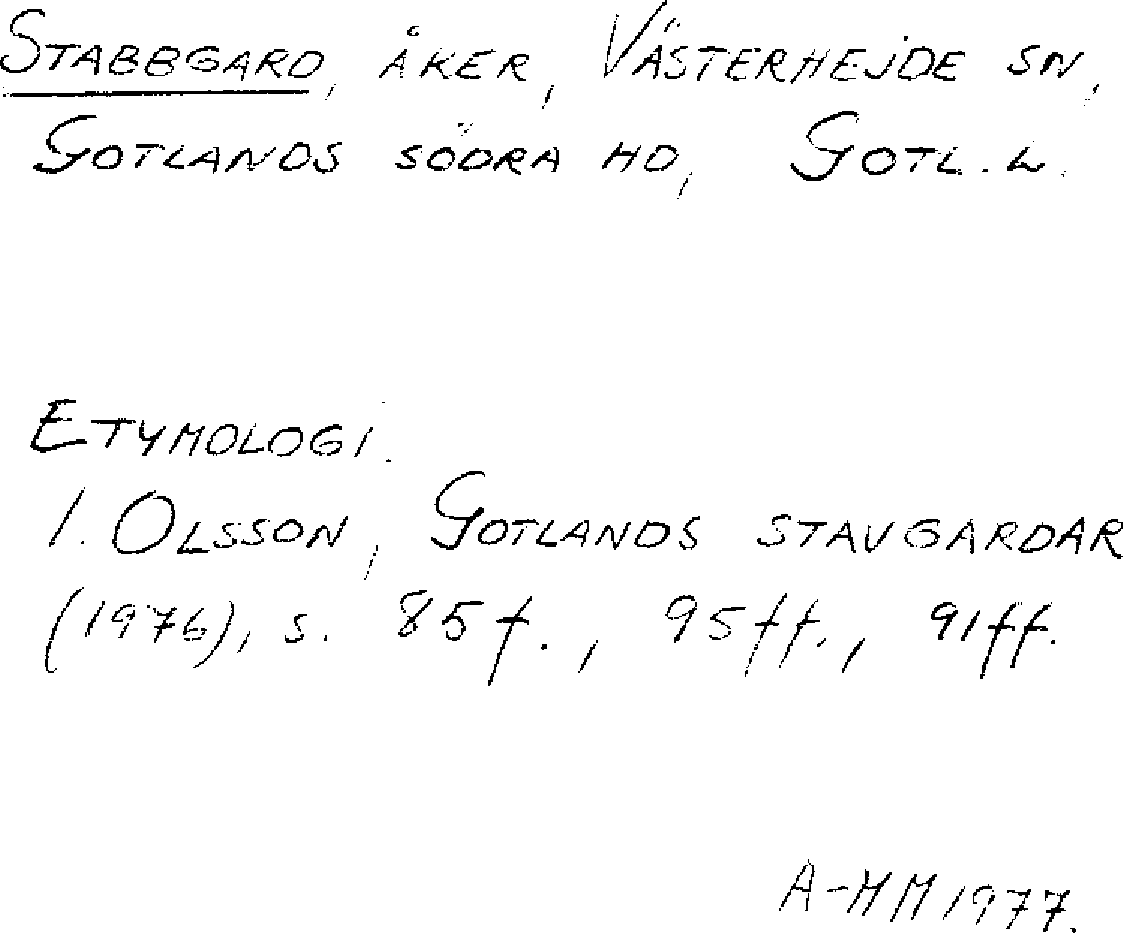 Stabbgard, åker, Västerhejde sn,
Gotlands södra hd, Gotl. L.
Etymologi.
I. Olsson, Gotlands stavgardar
(1976), s. 85f., 95ff., 91ff.
A-MM 1977.